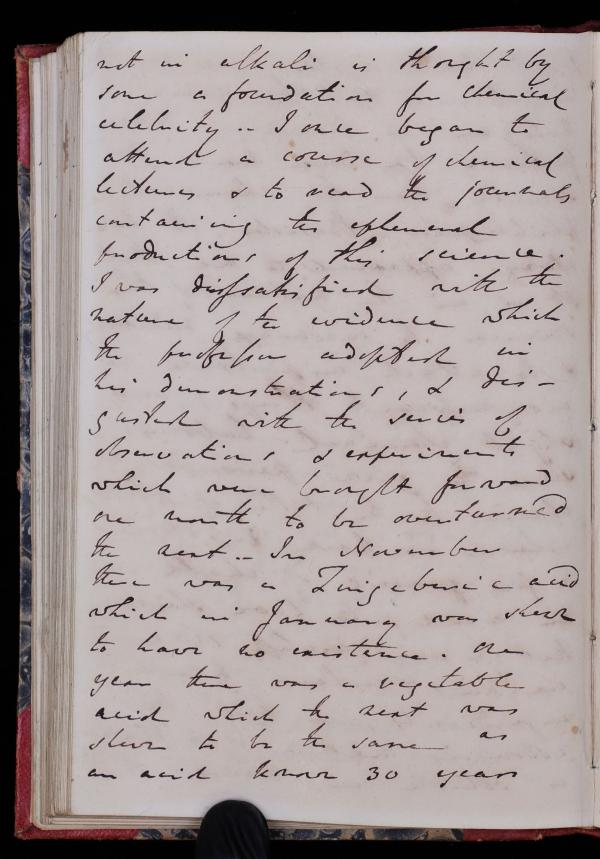 not in alkali is thought by
some a foundation for chemical
celebrity -- I once began to
attend a course of chemical
lectures & to read the journals
containing the ephemeral
productions of this science.
I was dissatisfied with the
nature of the evidence which
the professor adopted in
his demonstrations, & dis-
gusted with the series of
observations & experiments
which were brought forward
one month to be overturned
the next -- In November
there was a Zingeberic acid
which in January was shewn
to have no existence. One
year there was a vegetable
acid which the next was
shewn to be the same as
an acid known 30 years